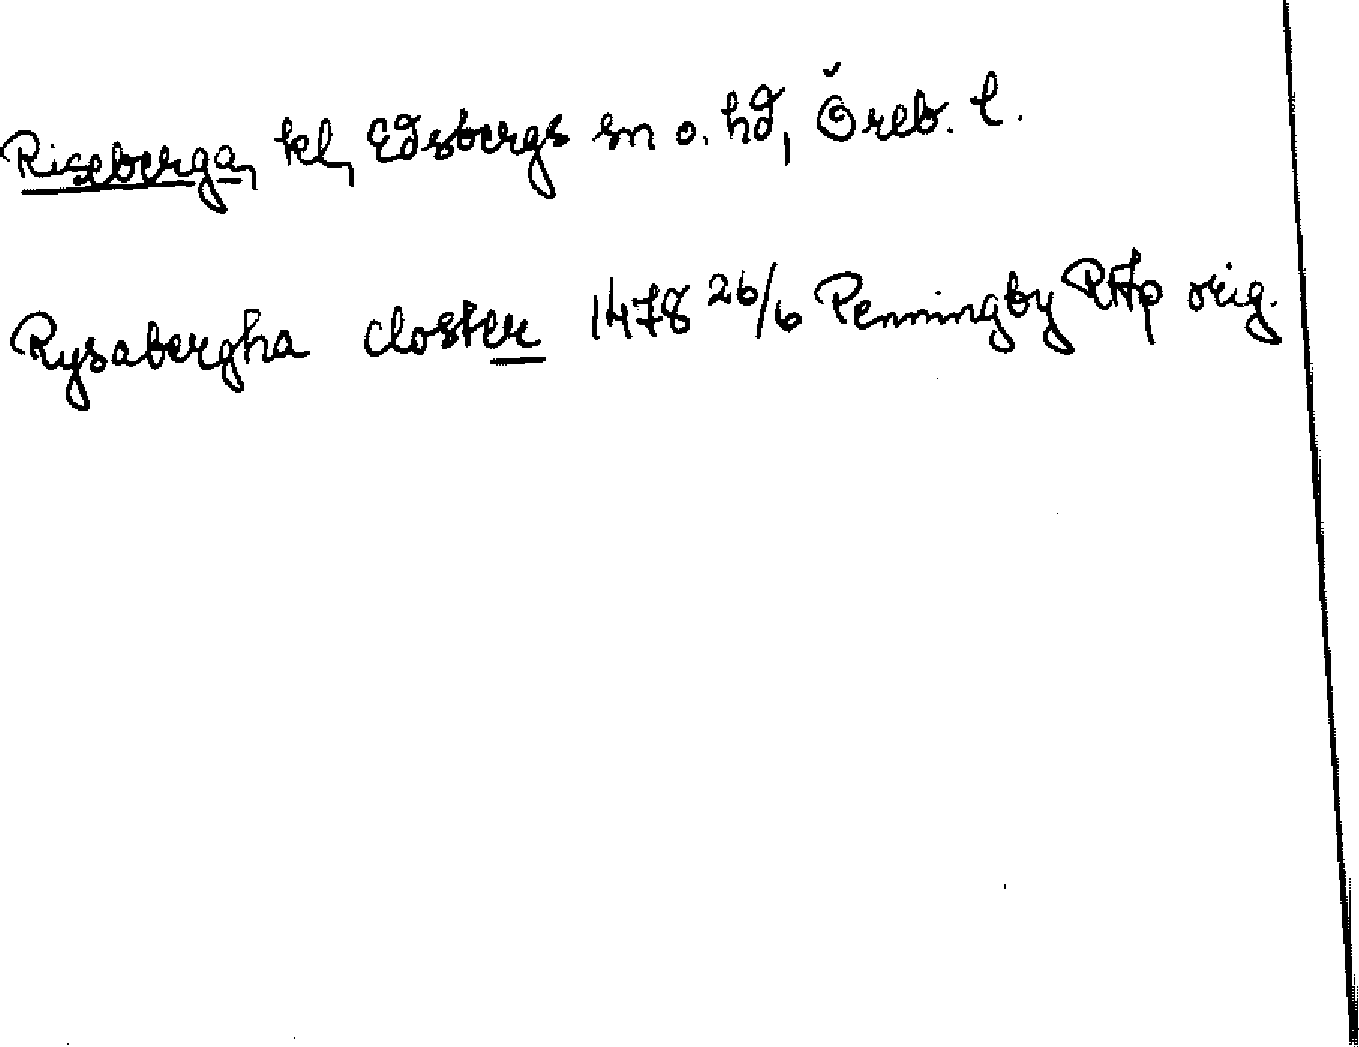 Riseberga, kl, Edsbergs sn o. hd, Öreb. l.
Rysabergha closter 1478 26/6 Penningby RAp orig.